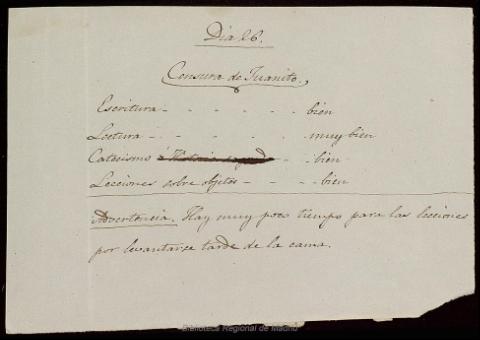 Dia 26.
Censura de Juanito.
Escritura - - - - - - bien
Lectura - - - - - - muy bien
Catecismo é Historia sagrada - - bien
Lecciones sobre objetos - - - bien
Advertencia. Hay muy poco tiempo para las lecciones
por levantarse tarde de la cama.
Biblioteca Regional de Madrid